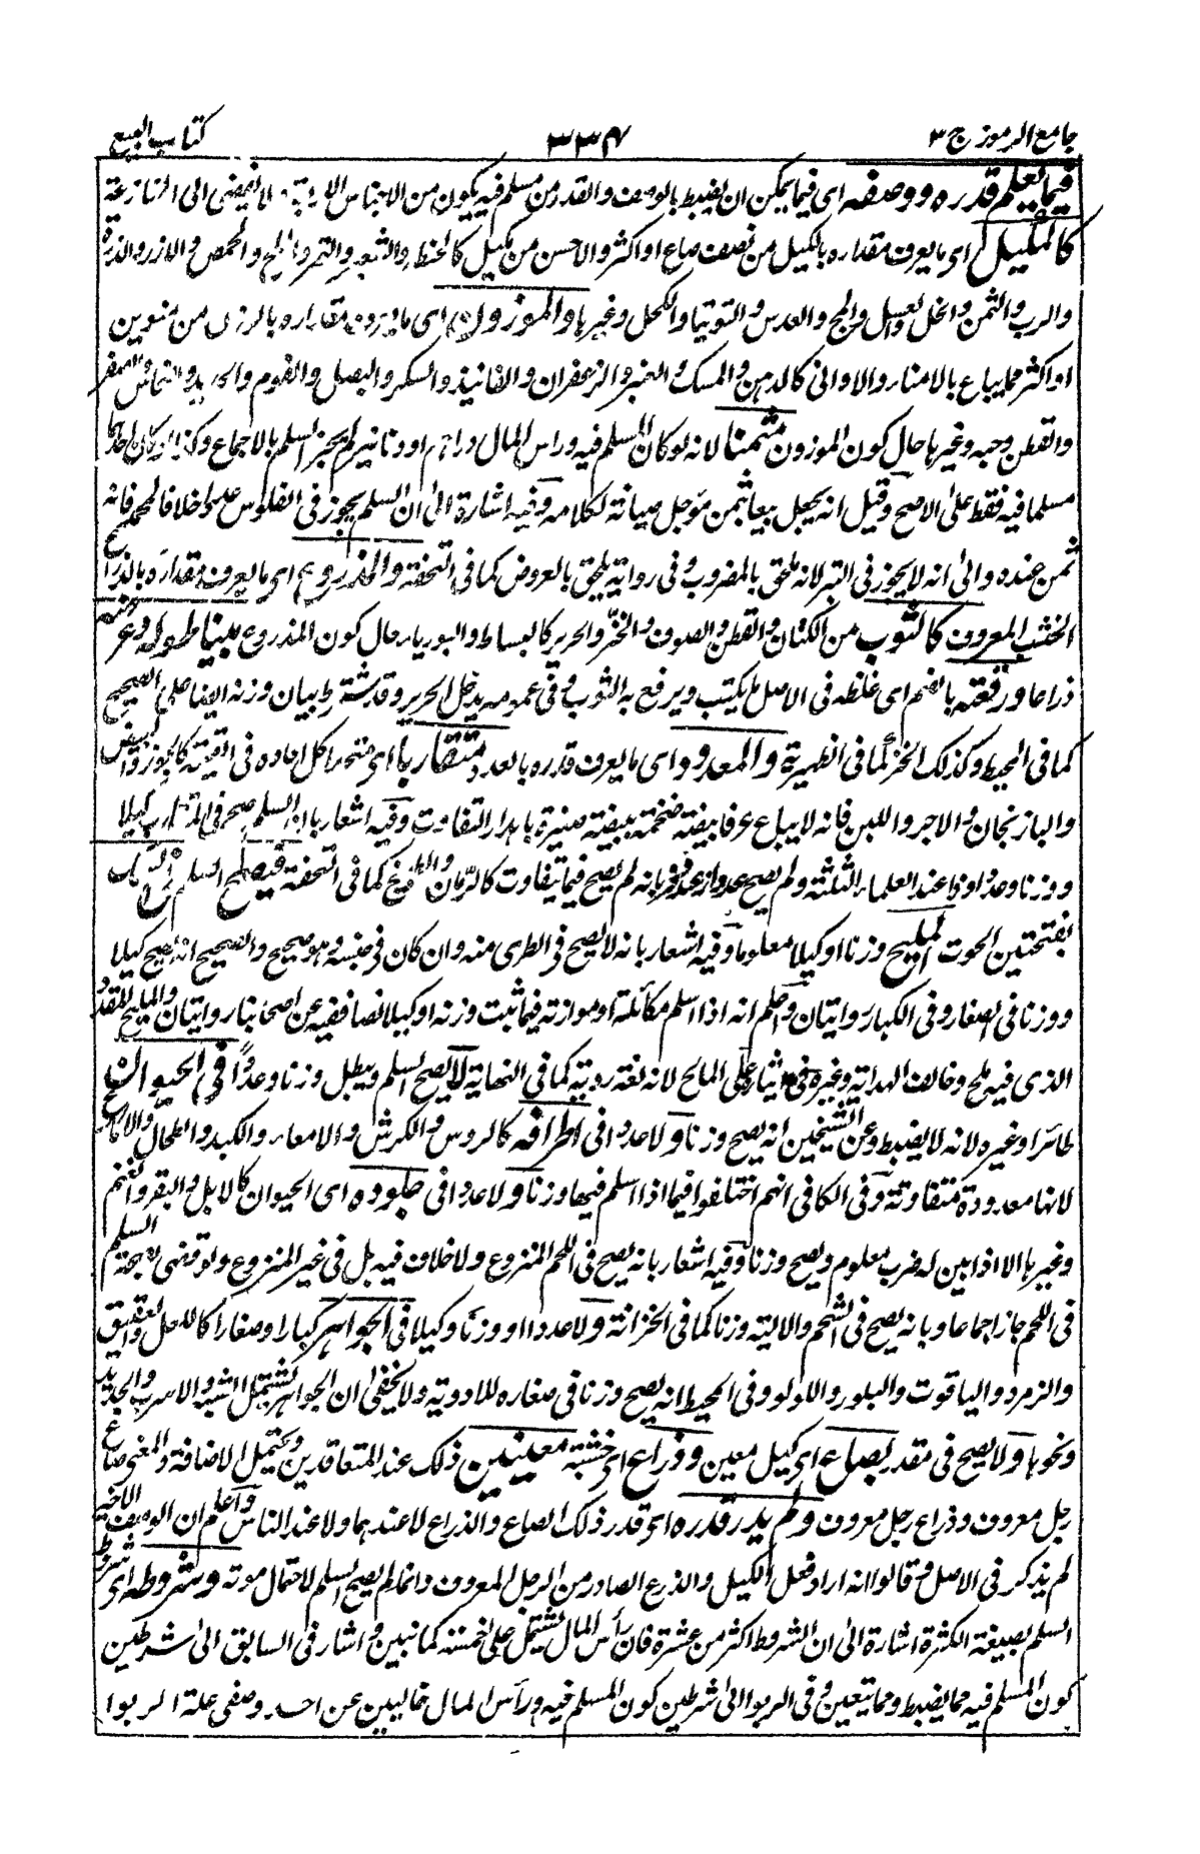 جامع الرموز ج ٣
٣٣٤
كتاب البيع
فيما يعلم قدره ووصفه اى فيما يمكن ان يضبط بالوصف والقدر من مسلم فيه يكون من الاجناس لا يفضى الى المنازعة
كالمكيل اى ما يعرف مقداره بالكيل من نصف صاع او اكثر والاحسن من مكيل كالحنطة والشعير والتمر والملح والحمص والارز والذرة
والرب والثمن والخل والعسل والعدس والتوتيا والكحل وغيرها والموزون اى ما يعرف مقداره بالوزن من منوين
او اكثر مما يباع بالامنار والاوانى كالدهن والمسك والعنبر والزعفران والفانيذ والسكر والبصل والفوم والحديد والنحاس والصفر
والقطن وحبه وغيرها حال كون الموزون مثمنا لانه لو كان المسلم فيه ورأس المال دراهم او دنانير لم يجز السلم بالاجماع وكذا لو كان احدهما
مسلما فيه فقط على الاصح وقيل انه يجعل بيعا بثمن مؤجل صيانة لكلامه وفيه اشارة الى ان السلم يجوز فى الفلوس عددا خلافا لمحمد فانه
ثمن عنده والى انه لا يجوز فى التبر لانه ملحق بالمضروب وفى رواية يلحق بالعروض كما فى التحفة والمذروع اى ما يعرف مقداره بالذراع
الخشب المعروف كالثوب من الكتان والقطن والصوف والخز والحرير كالبساط والبوريا حال كون المذروع مبينا طوله وعرضه
ذراعا ورقعته بالضم اى غلظه فى الاصل ما يكتب ويرفع به الثوب وفى عمومه يدخل الحرير وقد شرط بيان وزنه ايضا على الصحيح
كما فى المحيط وكذلك الخز كما فى الظهيرية والمعدود اى ما يعرف قدره بالعدد متقاربا اى متحدا كل احاده فى القيمة كالجوز والبيض
والباذنجان والاجر واللبن فانه لا يباع عرفا بيضة ضخمة ببيضة صغيرة باهدار التفاوت وفيه اشعار بان السلم صح فى المتقارب كيلا
ووزنا وعدا وذا عند العلماء الثلثة ولم يصح عددا عند زفر بانه لم يصح فيما يتفاوت كالرمان والبطيخ كما فى التحفة فيصح السلم فى السمك
بفتحتين الحوت المليح وزنا او كيلا معلوما وفيه اشعار بانه لا يصح فى الطرى منه وان كان فى حينه وهو صحيح والصحيح انه يصح كيلا
ووزنا فى الصغار وفى الكبار روايتان واعلم انه اذا اسلم مكائلة او موازنة فيما ثبت وزنه او كيلا نصا ففيه عن اصحابنا روايتان والمليح المقدد
الذى فيه ملح وخالف الهداية وغيره فى ايثاره على المالح لانه لغة ردية كما فى النهاية لا يصح السلم ويبطل وزنا وعدا فى الحيوان
طائرا وغيره لانه لا يضبط وعن الشيخين انه يصح وزنا ولا عددا فى اطرافه كالروس والكرش والامعاء والكبد والطحال والاكارع
لانها معدودة متفاوتة وفى الكافى انهم اختلفوا فيما اذا اسلم فيها وزنا ولا عددا فى جلوده اى الحيوان كالابل والبقر والغنم
وغيرها الا اذا بين له ضرب معلوم ويصح وزنا وفيه اشعار بانه يصح فى اللحم المنزوع ولا خلاف فيه بل فى غير المنزوع ولو قضى بصحة السلم
فى اللحم جاز اجماعا وبانه يصح فى الشحم والالية وزنا كما فى الخزانة ولا عددا او وزنا وكيلا فى الجواهر كبارا وصغارا كاللعل والعقيق
والزمرد والياقوت والبلور واللولو وفى المحيط انه يصح وزنا فى صغاره للادوية ولا يخفى ان الجواهر يشتمل الشبه والاسرب والحديد
ونحوها ولا يصح فى مقدر بصاع اى كيل معين وذراع اى خشبة معينين ذلك عند المتعاقدين ويحتمل الاضافة والمعنى صاع
رجل معروف وذراع رجل معروف ولم يدر قدره اى قدر ذلك الصاع والذراع لا عندهما ولا عند الناس واعلم ان الوصف الاخير
لم يذكر فى الاصل وقالوا انه اراد فعل الكيل والذرع الصادر من الرجل المعروف وانما لم يصح السلم لاحتمال موته وشروطه اى شرط
السلم بصيغة الكثرة اشارة الى ان الشروط اكثر من عشرة فان رأس المال يشتمل على خمسة كما نبين و اشار فى السابق الى شرطين
كون المسلم فيه مما يضبط ومما يتعين وفى الربوا الى شرطين كون المسلم فيه ورأس المال خاليين عن احد وصفى علة الربوا